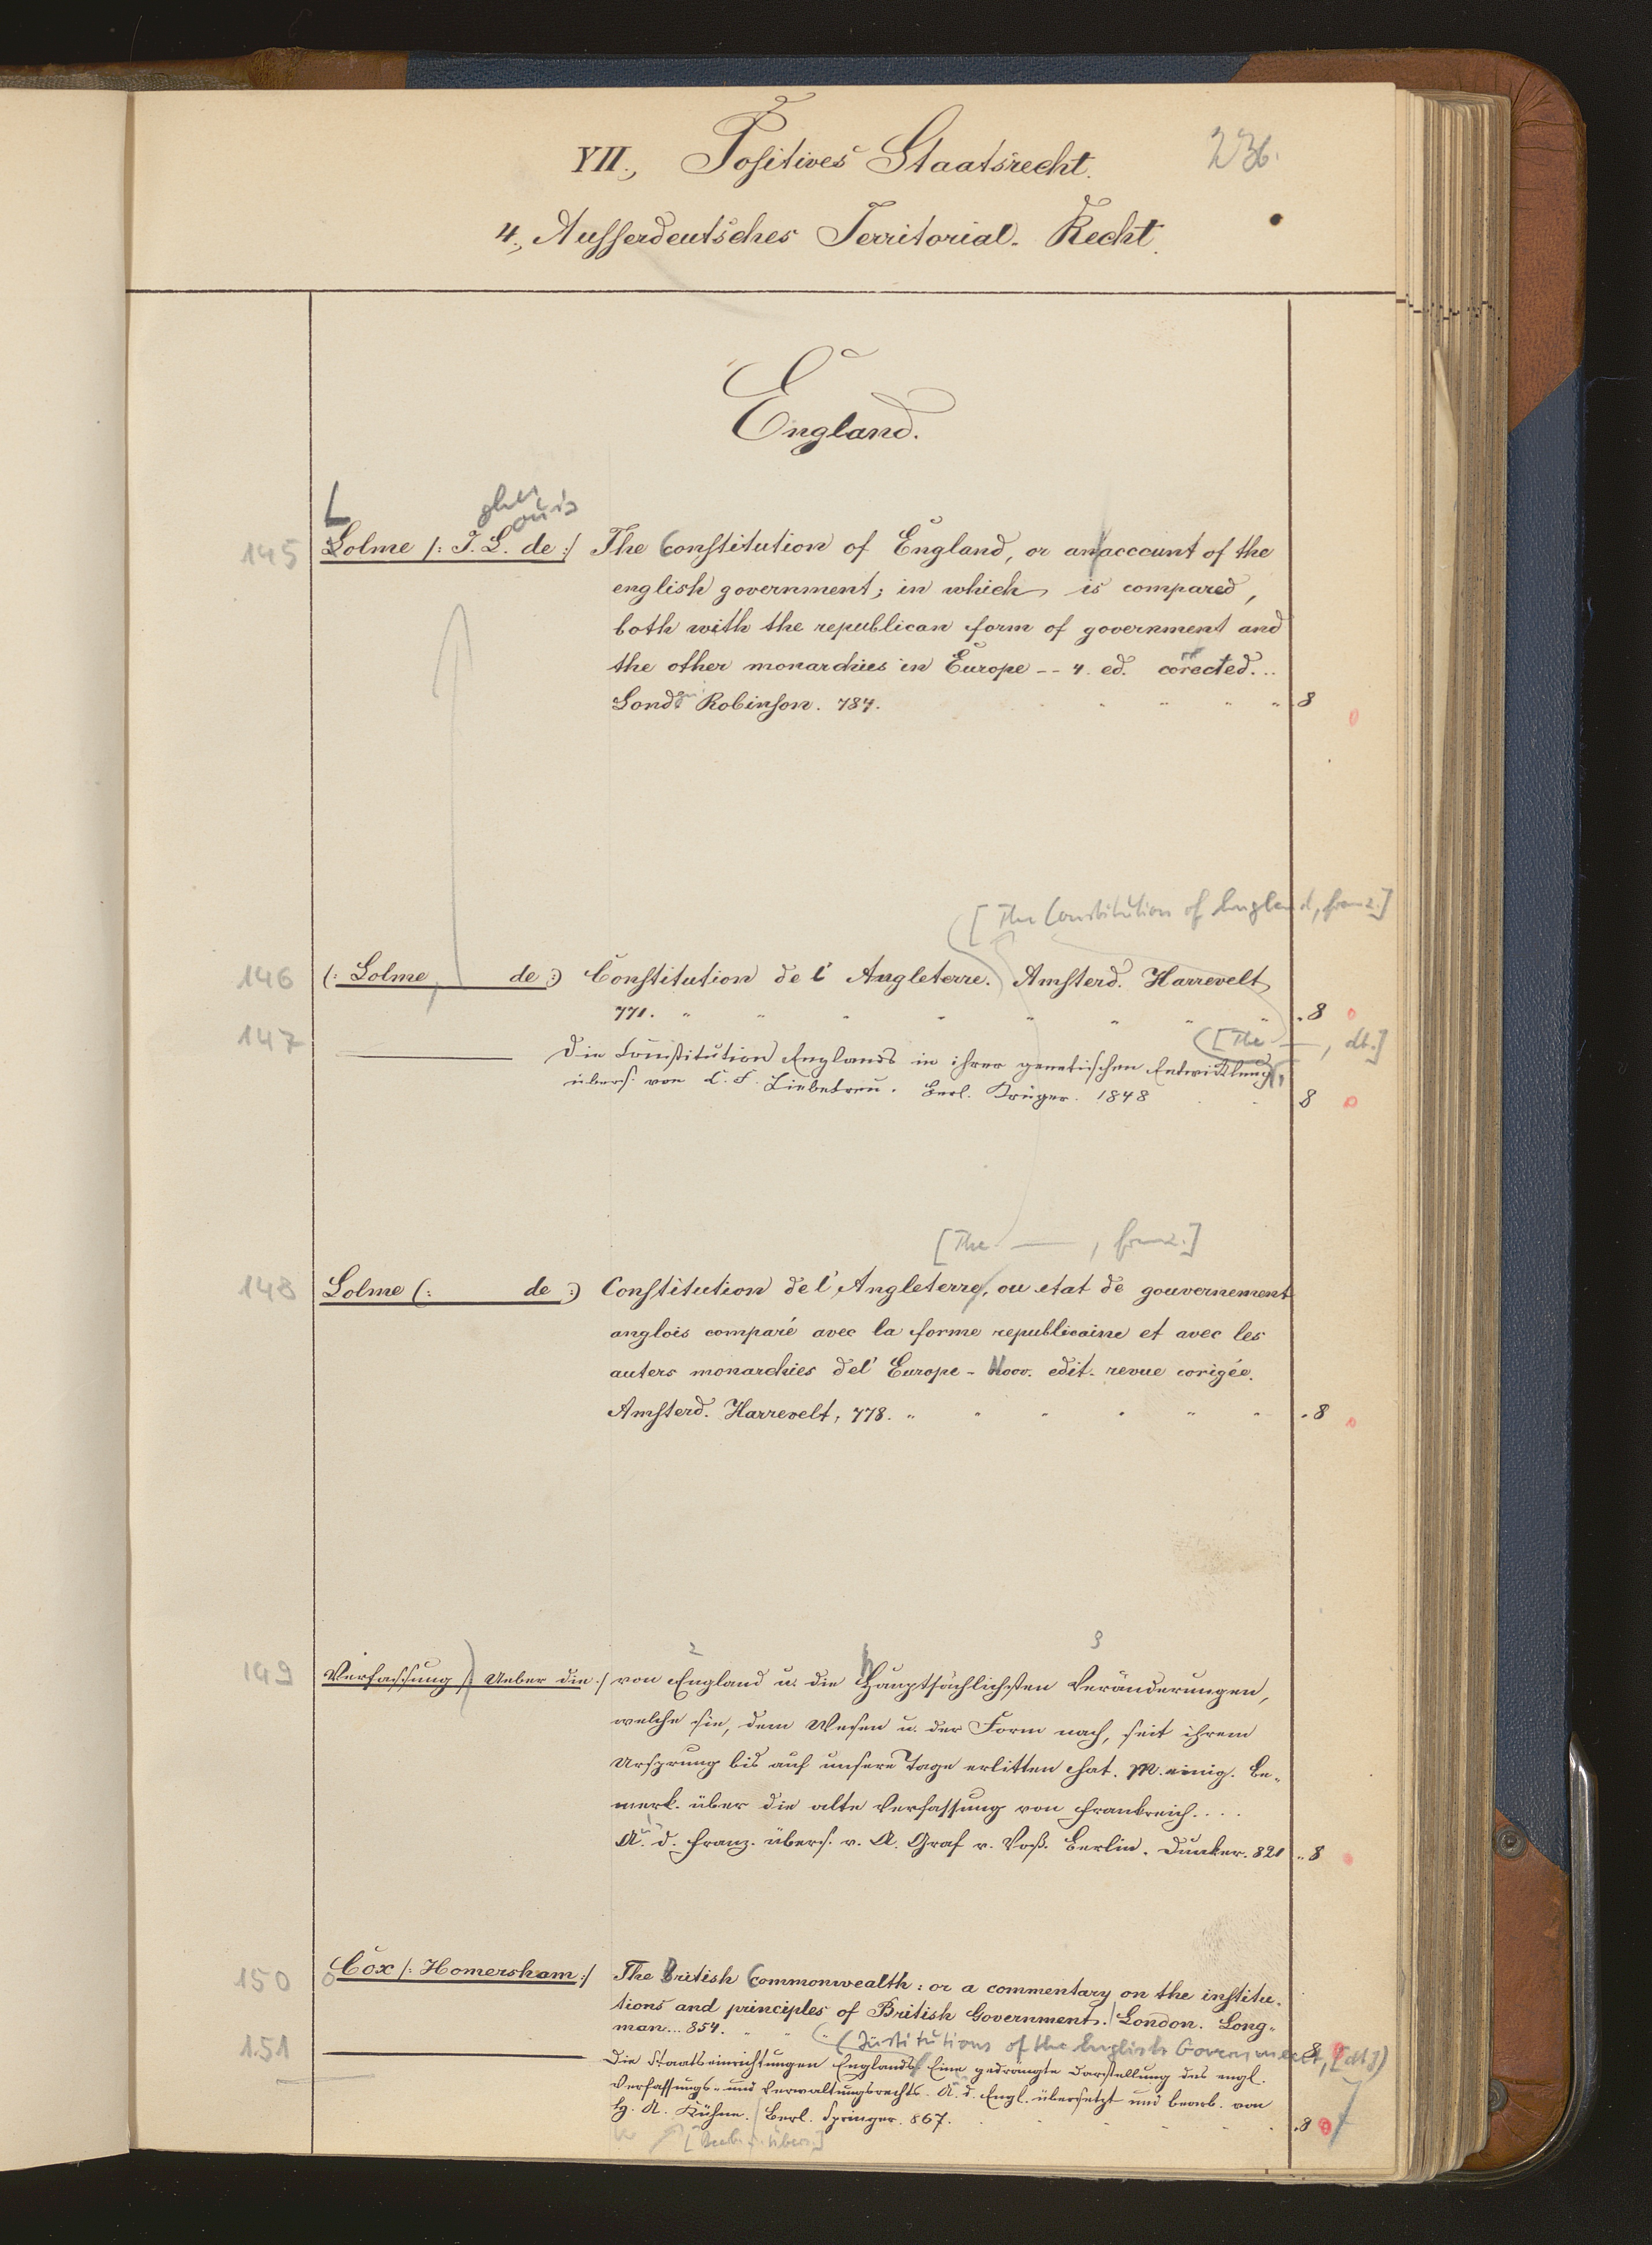 VII., Positives Staatsrecht.
236.
4., Ausserdeutsches Territorial-Recht.
England.
L
ouis
145 Lolme /: J. L. de :/ The Constitution of England, or an acccunt of the
english government; in which is compared,
both with the republican form of government and
the other monarchies in Europe -- 4. ed. corected...
Lond. Robinson. 784. " " " " " 8
[The Constitution of England, franz.]
146 (: Lolme, de :) Constitution de l' Angleterre. Amsterd. Harrevelt
771. " " " " " " " " . 8
[The —, dt.]
147 — Die Constitution Englands in ihrer genetischen Entwicklung,
übers. von C. F. Liebetreu. Berl. Krüger. 1848 8
[The —, franz.]
148 Lolme (: de :) Constitution de l' Angleterre, ou etat de gouvernement
anglois comparé avec la forme republicaine et avec les
auters monarchies del' Europe - Nouv. edit. revue corigée.
Amsterd. Harrevelt, 778. " " " " " " . 8
2 3
149 Verfassung /: Ueber die :/ von England u. die Hauptsächlichsten Veränderungen,
welche sie, dem Wesen u. der Form nach, seit ihrem
Ursprung bis auf unsere Tage erlitten hat. M. einig. Be-
merk. über die alte Verfassung von Frankreich....
A. d. Franz. übers. v. A. Graf v. Voß. Berlin. Dunker. 821 " 8
150 Cox /: Homersham :/ The British Commonwealth: or a commentary on the institu-
tions and principles of British Government. London. Long-
man... 854. " " " 8
(Institutions of the English Government, [dt.])
151 — Die Staatseinrichtungen Englands. Eine gedrängte Darstellung des engl.
Verfassungs- und Verwaltungsrechts. A. d. Engl. übersetzt und bearb. von
H. A. Kühne. Berl. Springer. 867. . 8